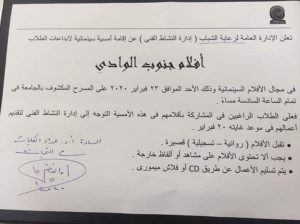 تعلن الإدارة العامة لرعاية الشباب ( إدارة النشاط الفنى ) عن إقامة أمسية سينمائية لابداعات الطلاب
أفلام جنوب الوادي
فى مجال الأفلام السينمائية وذلك الأحد الموافق ٢٣ فبراير ٢٠٢٠ على المسرح المكشوف بالجامعة في
تمام الساعة السادسة مساءً .
فعلى الطلاب الراغبين فى المشاركة بأفلامهم فى هذه الأمسية التوجه إلى إدارة النشاط الفنى لتقديم
أعمالهم في موعد غايته ٢٠ فبراير .
• تقبل الأفلام ( روائية – تسجيلية ) قصيرة .
• يجب ألا تحتوى الأفلام على مشاهد أو ألفاظ خارجة .
• يتم تسليم الأعمال عن طريق CD أو فلاش ميمورى .
السادة